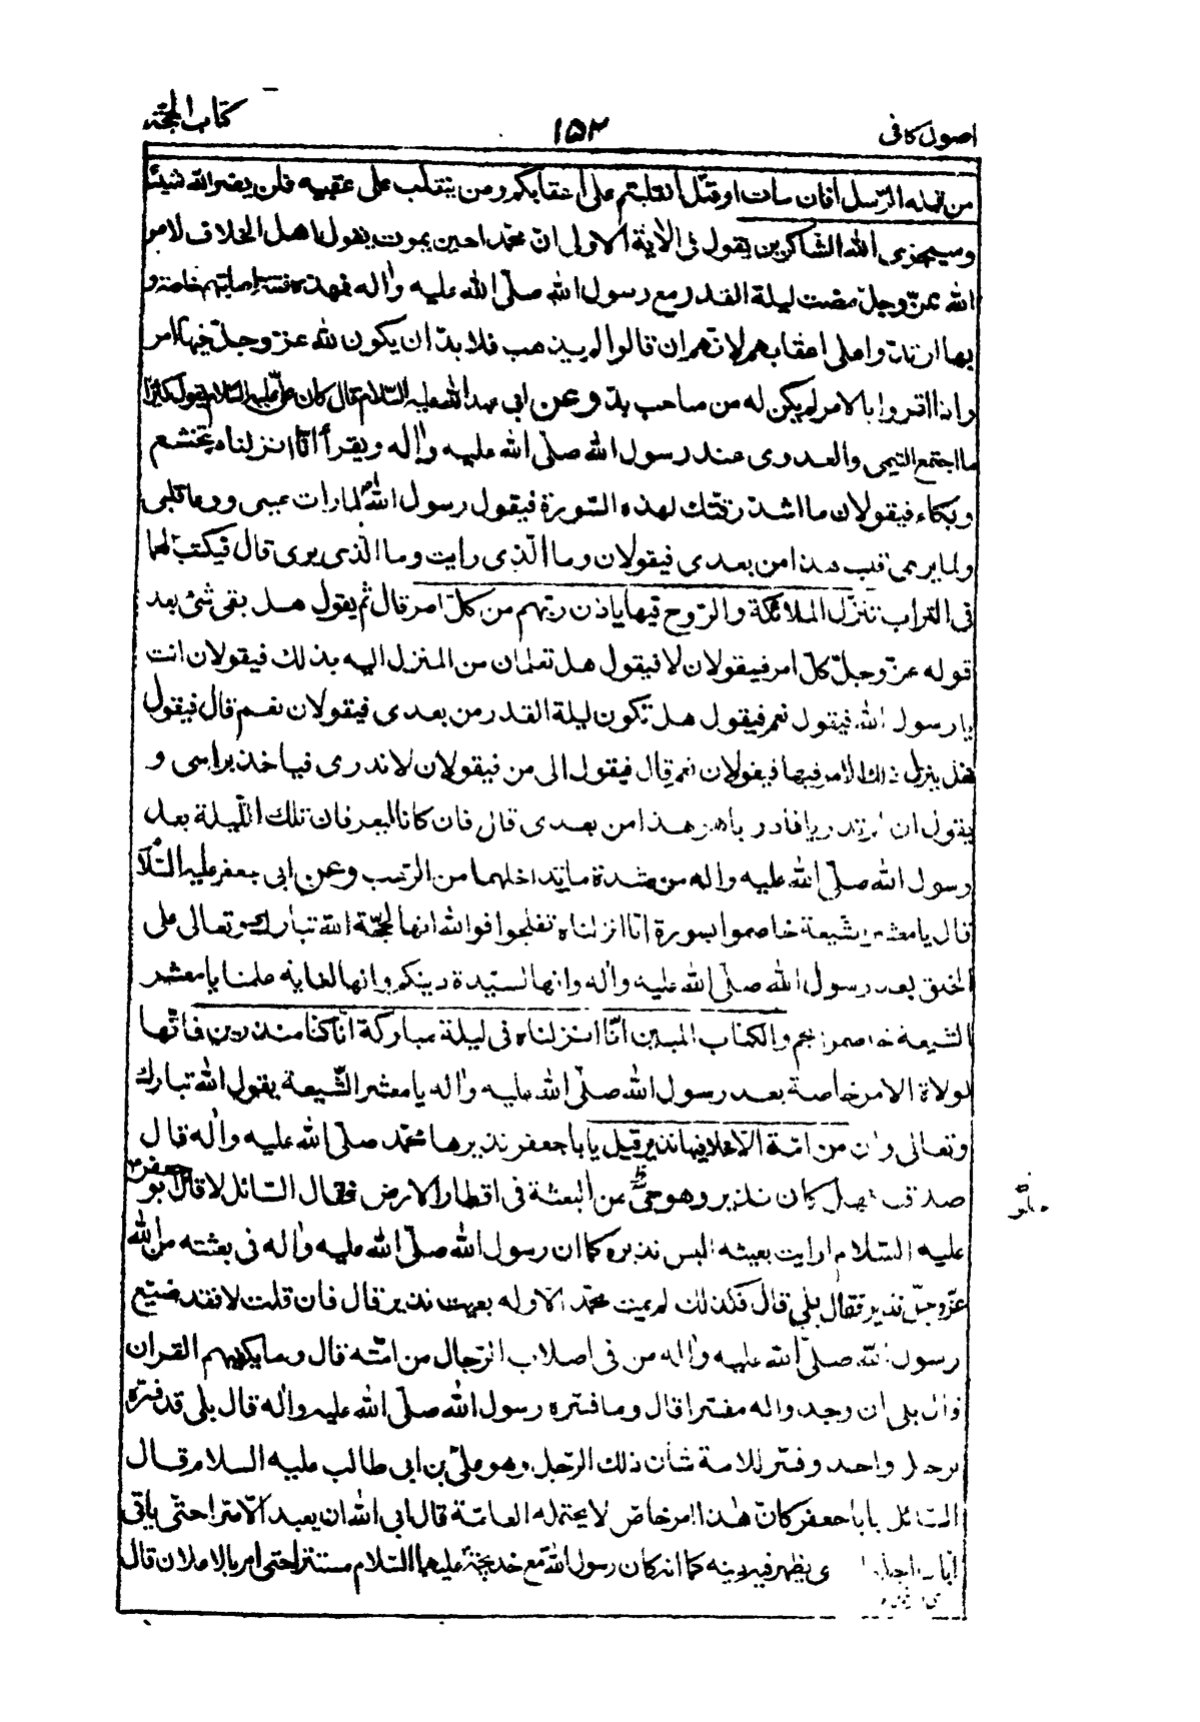 اصول كافى ١٥٢ كتاب الحجّة
من قبله الرّسل أفان مات اوقتل انقلبتم على اعقابكم ومن ينقلب على عقبيه فلن يضر الله شيئا
وسيجزى الله الشاكرين يقول فى الاية الاولى انّ محمّدا حين يموت يقول اهل الخلاف لامر
الله عزّ وجلّ مضت ليلة القدر مع رسول الله صلّى الله عليه واٰله فهذه فتنة اصابتهم خاصة و
بها ارتدّوا على اعقابهم لانهم ان قالوا لم يذهب فلا بدّ ان يكون لله عزّ وجلّ فيها امر
واذا اقروا بالامر لم يكن له من صاحب بدّ وعن ابى عبد الله عليه السّلام قال كان علىّ عليه السّلام يقول كثيرا
ما اجتمع التيمى والعدوى عند رسول الله صلّى الله عليه واٰله ويقرأ انّا انزلناه بتخشع
وبكاء فيقولان ما اشدّ رقّتك لهذه السّورة فيقول رسول الله لما رات عينى ووعا قلبى
ولما يرى قلب هذا من بعدى فيقولان وما الّذى رايت وما الّذى يرى قال فيكتب لهما
فى التراب تنزّل الملائكة والرّوح فيها باذن ربّهم من كلّ امر قال ثم يقول هل بقى شئ بعد
قوله عزّ وجلّ كلّ امر فيقولان لا فيقول هل تعلمان من المنزل اليه بذلك فيقولان انت
يا رسول الله فيقول نعم فيقول هل تكون ليلة القدر من بعدى فيقولان نعم قال فيقول
فهل ينزل ذلك الامر فيها فيقولان نعم قال فيقول الى من فيقولان لا ندرى فياخذ براسى و
يقول ان لم تدريا فادريا هو هذا من بعدى قال فان كانا ليعرفان تلك اللّيلة بعد
رسول الله صلّى الله عليه واله من شدة ما يتداخلهما من الرّعب وعن ابى جعفر عليه السّلام
قال يا معشر الشيعة خاصموا بسورة انّا انزلناه تفلجوا فوالله انها لحجّة الله تبارك وتعالى على
الخلق بعد رسول الله صلّى الله عليه واٰله وانها لسيّدة دينكم وانها لغاية علمنا يا معشر
الشيعة خاصموا بحم والكتاب المبين انّا انزلناه فى ليلة مباركة انّا كنا منذرين فانّها
لولاة الامر خاصة بعد رسول الله صلّى الله عليه واٰله يا معشر الشّيعة يقول الله تبارك
وتعالى وان من امّة الّا خلا فيها نذير قيل يا باجعفر نذيرها محمّد صلّى الله عليه واٰله قال
صدقت فهل كان نذير وهو حىّ من البعثة فى اقطار الارض فقال السّائل لا قال ابو جعفر
عليه السّلام ارايت بعيثه اليس نذيره كما ان رسول الله صلّى الله عليه واٰله فى بعثته من الله
عزّ وجلّ نذير فقال بلى قال فكذلك لم يمت محمّد الّا وله بعيث نذير قال فان قلت لا فقد ضيّع
رسول الله صلّى الله عليه واٰله من فى اصلاب الرّجال من امّته قال وما يكفيهم القران
قال بلى ان وجدوا له مفسّرا قال وما فسّره رسول الله صلّى الله عليه واٰله قال بلى قد فسّره
لرجل واحد وفسّر للامة شان ذلك الرّجل وهو علىّ بن ابى طالب عليه السلام قال
السّائل يا باجعفر كان هٰذا امر خاصّ لا يحتمله العامّة قال ابى الله ان يعبد الّا سرّا حتّى ياتى
ابّان اجله الّذى يظهر فيه دينه كما انه كان رسول الله مع خديجة عليهما السّلام مستترا حتى امر بالاعلان قال